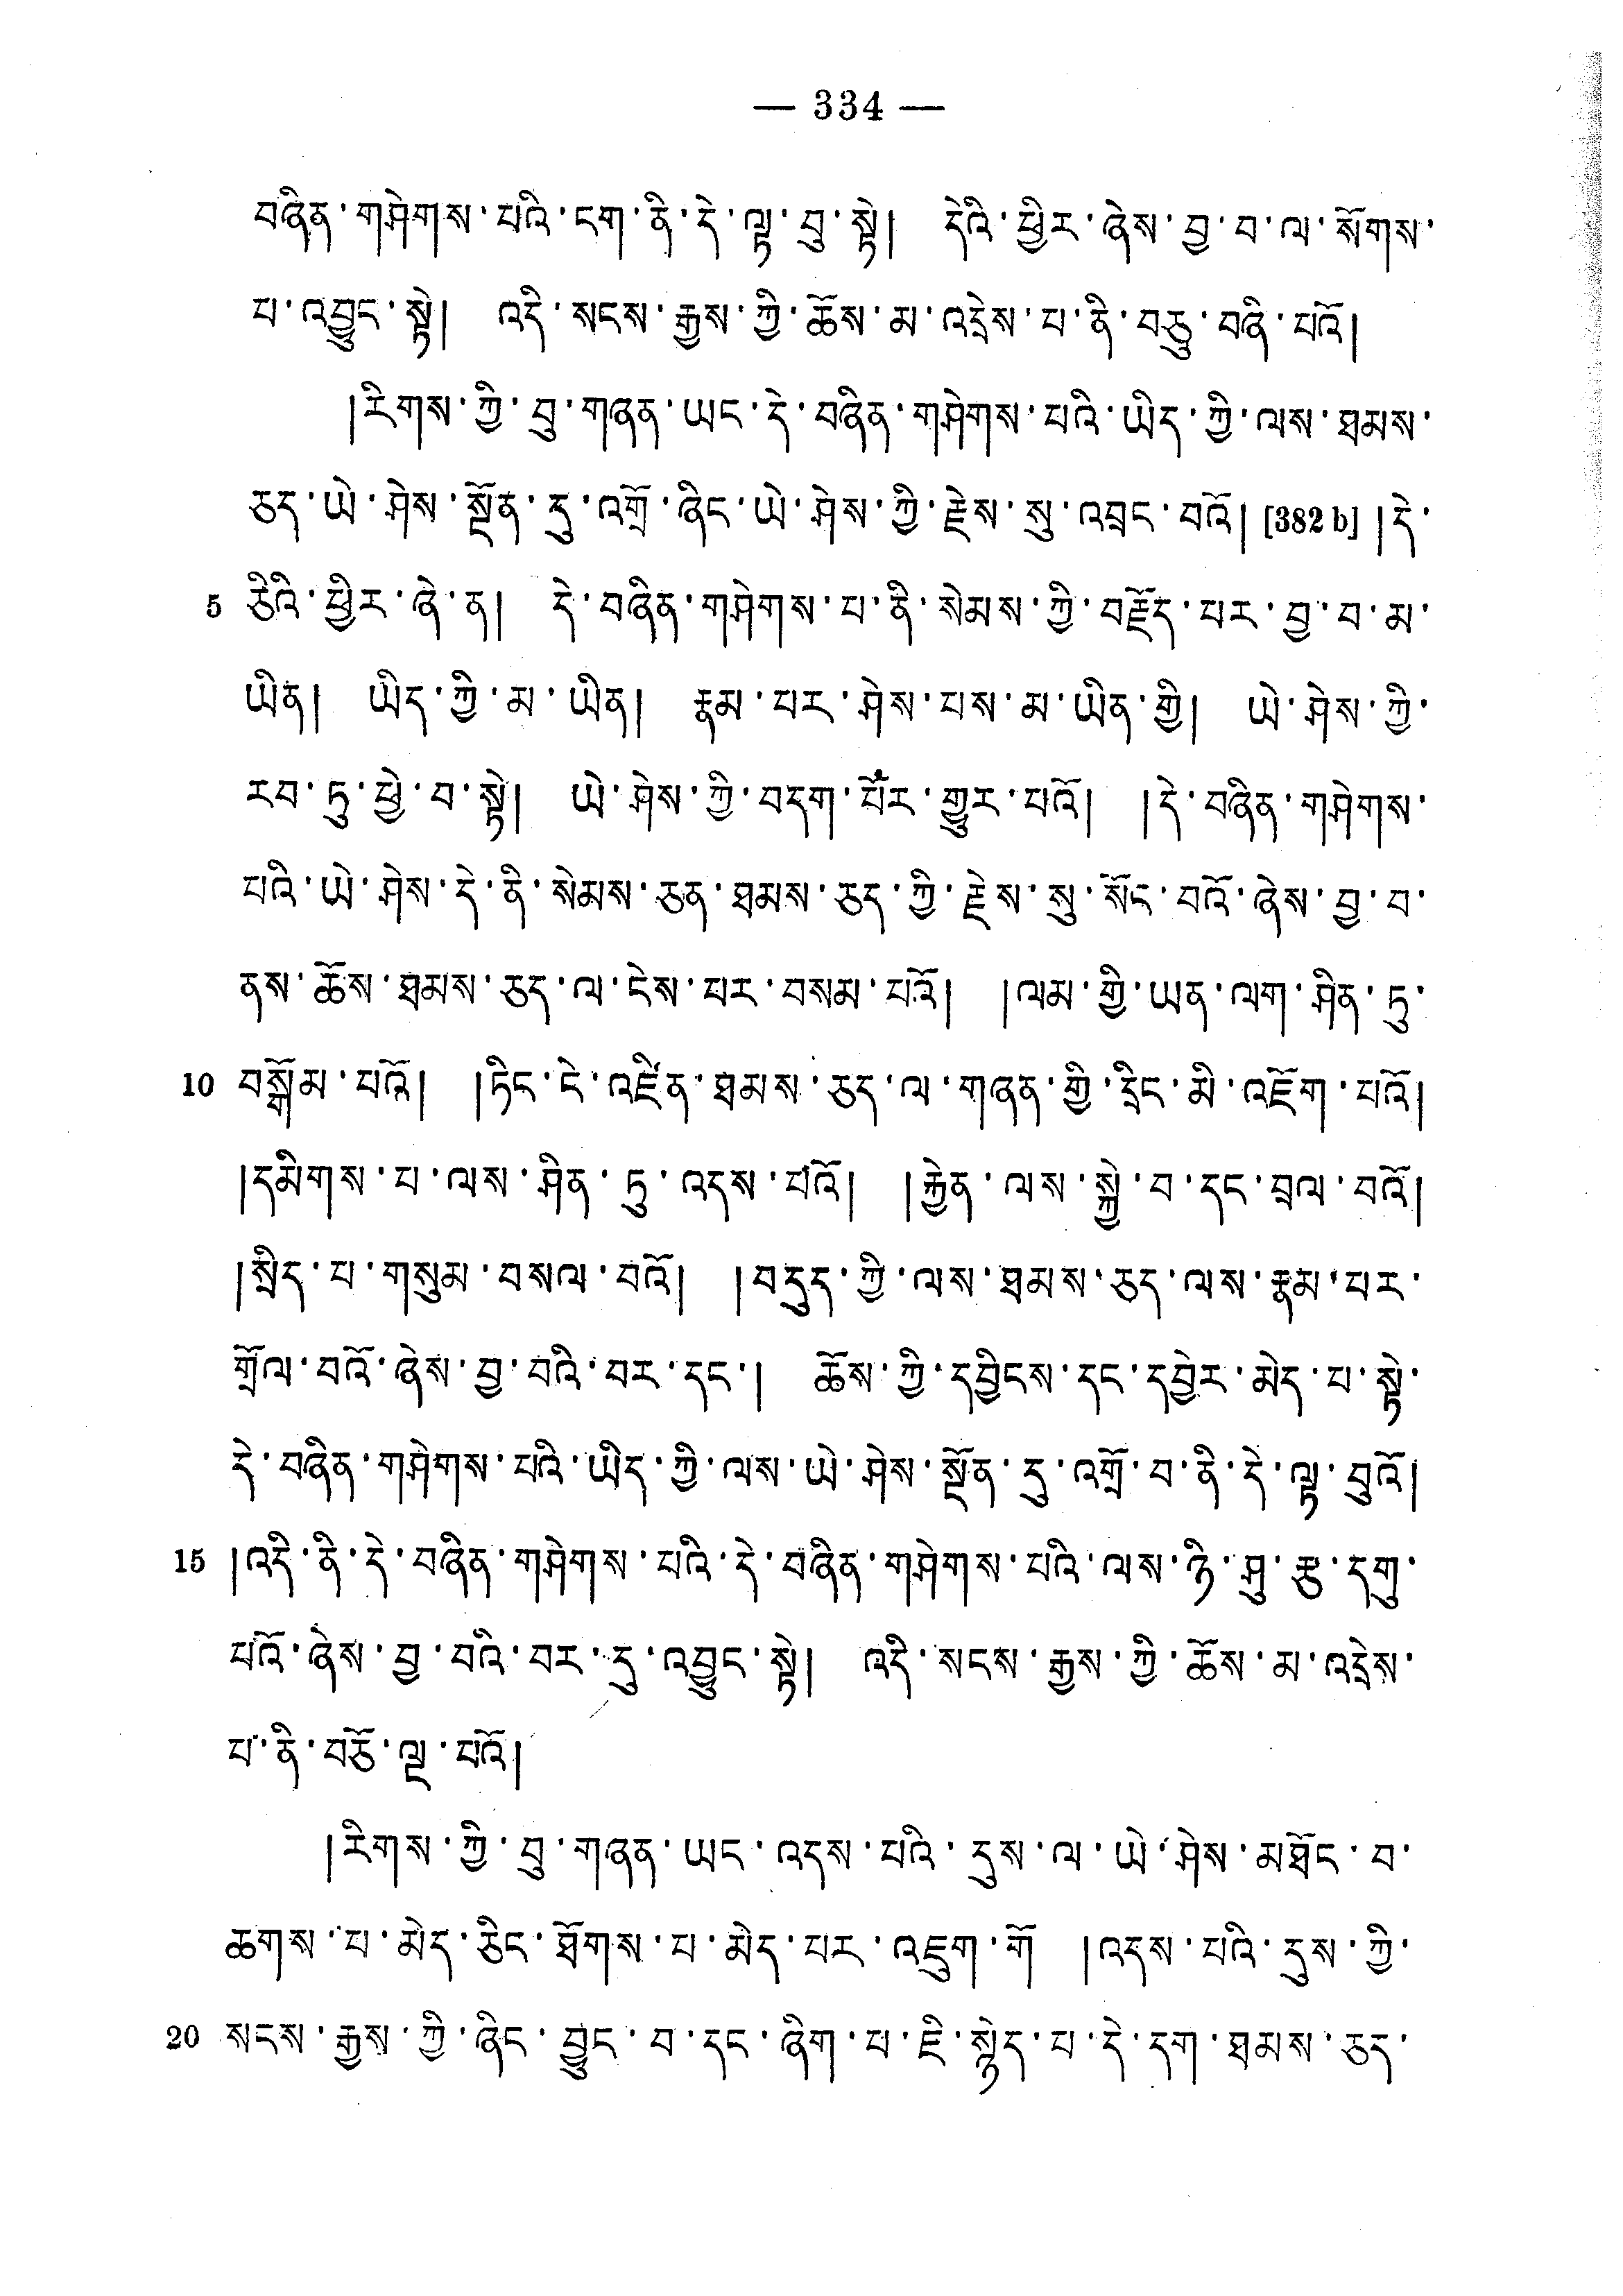 — 334 —
བཞིན་གཤེགས་པའི་ངག་ནི་དེ་ལྟ་བུ་སྟེ། དེའི་ཕྱིར་ཞེས་བྱ་བ་ལ་སོགས་
པ་འབྱུང་སྟེ། འདི་སངས་རྒྱས་ཀྱི་ཆོས་མ་འདྲེས་པ་ནི་བཅུ་བཞི་པའོ།
།རིགས་ཀྱི་བུ་གཞན་ཡང་དེ་བཞིན་གཤེགས་པའི་ཡིད་ཀྱི་ལས་ཐམས་
ཅད་ཡེ་ཤེས་སྔོན་དུ་འགྲོ་ཞིང་ཡེ་ཤེས་ཀྱི་རྗེས་སུ་འབྲང་བའོ། [382 b] །དེ་
5 ཅིའི་ཕྱིར་ཞེ་ན། དེ་བཞིན་གཤེགས་པ་ནི་སེམས་ཀྱི་བརྗོད་པར་བྱ་བ་མ་
ཡིན། ཡིད་ཀྱི་མ་ཡིན། རྣམ་པར་ཤེས་པས་མ་ཡིན་གྱི། ཡེ་ཤེས་ཀྱི་
རབ་ཏུ་ཕྱེ་བ་སྟེ། ཡེ་ཤེས་ཀྱི་བདག་པོར་གྱུར་པའོ། །དེ་བཞིན་གཤེགས་
པའི་ཡེ་ཤེས་དེ་ནི་སེམས་ཅན་ཐམས་ཅད་ཀྱི་རྗེས་སུ་སོང་བའོ་ཞེས་བྱ་བ་
ནས་ཆོས་ཐམས་ཅད་ལ་ངེས་པར་བསམ་པའོ། །ལམ་གྱི་ཡན་ལག་ཤིན་ཏུ་
10 བསྒོམ་པའོ། །ཏིང་ངེ་འཛིན་ཐམས་ཅད་ལ་གཞན་གྱི་དྲིང་མི་འཇོག་པའོ།
།དམིགས་པ་ལས་ཤིན་ཏུ་འདས་པའོ། །རྐྱེན་ལས་སྐྱེ་བ་དང་བྲལ་བའོ།
།སྲིད་པ་གསུམ་བསལ་བའོ། །བདུད་ཀྱི་ལས་ཐམས་ཅད་ལས་རྣམ་པར་
གྲོལ་བའོ་ཞེས་བྱ་བའི་བར་དང་། ཆོས་ཀྱི་དབྱིངས་དང་དབྱེར་མེད་པ་སྟེ་
དེ་བཞིན་གཤེགས་པའི་ཡིད་ཀྱི་ལས་ཡེ་ཤེས་སྔོན་དུ་འགྲོ་བ་ནི་དེ་ལྟ་བུའོ།
15 །འདི་ནི་དེ་བཞིན་གཤེགས་པའི་དེ་བཞིན་གཤེགས་པའི་ལས་ཉི་ཤུ་རྩ་དགུ་
པའོ་ཞེས་བྱ་བའི་བར་དུ་འབྱུང་སྟེ། འདི་སངས་རྒྱས་ཀྱི་ཆོས་མ་འདྲེས་
པ་ནི་བཅོ་ལྔ་པའོ།
།རིགས་ཀྱི་བུ་གཞན་ཡང་འདས་པའི་དུས་ལ་ཡེ་ཤེས་མཐོང་བ་
ཆགས་པ་མེད་ཅིང་ཐོགས་པ་མེད་པར་འཇུག་གོ །འདས་པའི་དུས་ཀྱི་
20 སངས་རྒྱས་ཀྱི་ཞིང་བྱུང་བ་དང་ཞིག་པ་ཇི་སྙེད་པ་དེ་དག་ཐམས་ཅད་